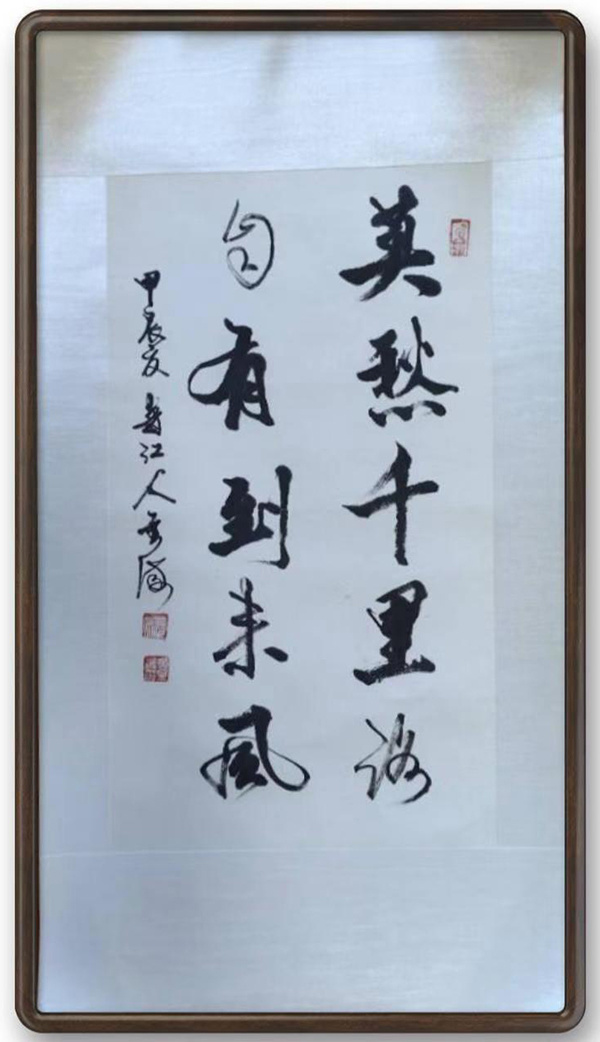 莫愁千里路
自有到来風
甲辰夏 江人